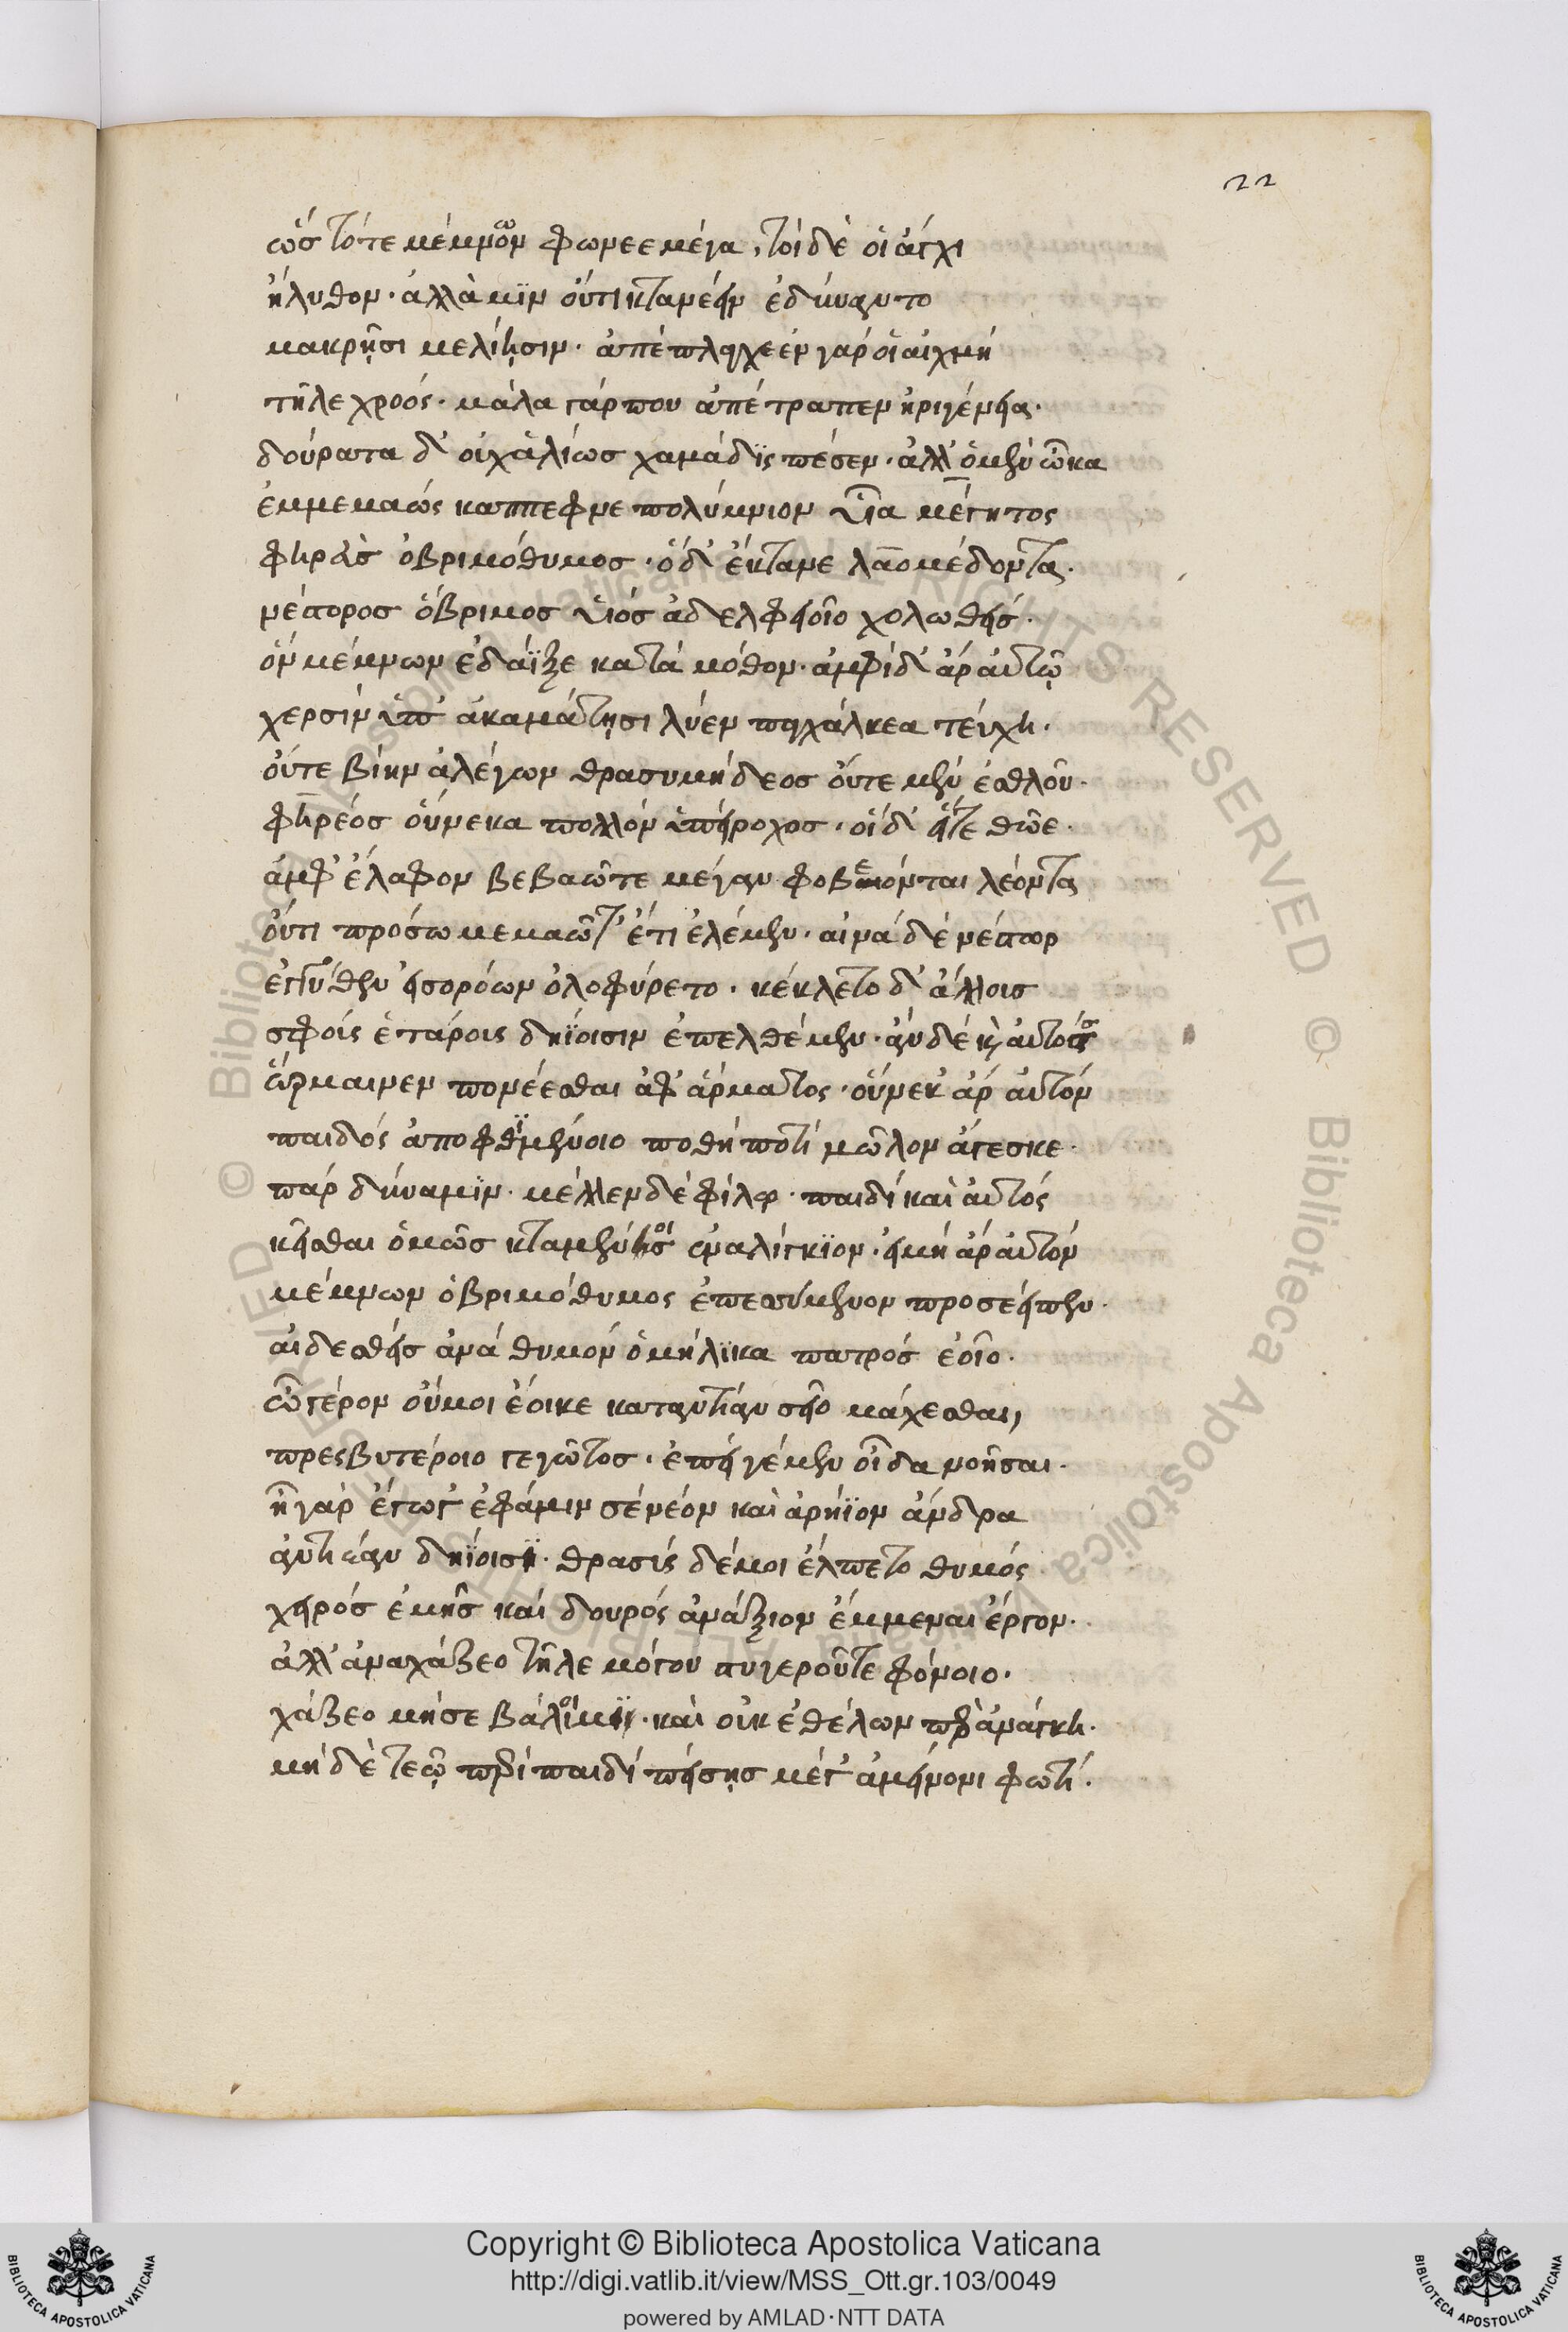 22
ὡς τότε μέμνων φώνεε μέγα, τοὶ δὲ οἱ ἄγχι
ἤλυθον· ἀλλά μϊν οὔτι κταμεῖν ἐδύναντο
μακρῇσι μελίῃσιν· ἀπέπλαγχθεν γάρ οἱ αἰχμὴ
τῆλε χροός· μάλα γάρ που ἀπέτραπεν ἠριγένεια·
δούρατα δ' οὐχ ἁλίως χαμάδϊς πέσεν· ἀλλ' ὁ μὲν ὦκα
ἐμμεμαὼς κάππεφνε πολύμνιον υἷα μέγητος
φηρεὺς ὀβριμόθυμος· ὁ δ' ἔκτανε λαομέδοντα·
νέστορος ὄβριμος υἱὸς ἀδελφειοῖο χολωθείς·
ὃν μέμνων ἐδάϊξε κατὰ μόθον· ἀμφὶ δ' ἄρ αὐτῷ
χερσὶν ὑπ' ἀκαμάτῃσι λύεν παγχάλκεα τεύχη·
οὔτε βίην ἀλέγων θρασυμήδεος οὔτε μὲν ἐσθλοῦ·
φηρέος οὕνεκα πολλὸν ὑπείροχος· οἱ δ' ἅτε θῶε·
ἀμφ' ἔλαφον βεβαῶτε μέγαν φοβέονται λέοντα
οὔτι πρόσω μεμαῶτ' ἔτι ἐλθέμεν· αἰνὰ δὲ νέστωρ
ἐγγύθεν εἰσορόων ὀλοφύρετο· κέκλετο δ' ἄλλοις
σφοῖς ἑτάροις δηΐοισιν ἐπελθέμεν· ἂν δὲ καὶ αὐτὸς
ὥρμαινεν πονέεσθαι ἀφ' ἅρματος· οὕνεκ' ἄρ αὐτὸν
παιδὸς ἀποφθϊμένοιο ποθὴ ποτὶ μῶλον ἄγεσκε·
πὰρ δύναμϊν· μέλλεν δὲ φίλῳ· παιδὶ καὶ αὐτὸς
κεῖσθαι ὁμῶς κταμένοις ἐναλίγκϊον· εἰ μὴ ἄρ αὐτὸν
μέμνων ὀβριμόθυμος ἐπεσσύμενον προσέειπεν·
αἰδεσθεὶς ἀνὰ θυμὸν ὁμήλϊκα πατρὸς ἑοῖο·
ὦ γέρον οὔ μοι ἔοικε καταντίαν σεῖο μάχεσθαι,
πρεσβυτέροιο γεγῶτος· ἐπεί γε μὲν οἶδα νοῆσαι·
ἦ γὰρ ἔγωγ' ἐφάμην σὲ νέον καὶ ἀρήϊον ἄνδρα
ἀντιάαν δηΐοισϊ· θρασὺς δέ μοι ἔλπετο θυμὸς
χειρὸς ἐμῆς καὶ δουρὸς ἀνάξιον ἔμμεναι ἔργον·
ἀλλ' ἀναχάζεο τῆλε μόγου στυγεροῦ τε φόνοιο·
χάζεο μή σε βάλοιμϊ· καὶ οὐκ ἐθέλων περ ἀνάγκη·
μὴ δὲ τεῷ περὶ παιδὶ πέσῃς μέγ' ἀμείνονι φωτί·
Copyright © Biblioteca Apostolica Vaticana
http://digi.vatlib.it/view/MSS_Ott.gr.103/0049
powered by AMLAD·NTT DATA